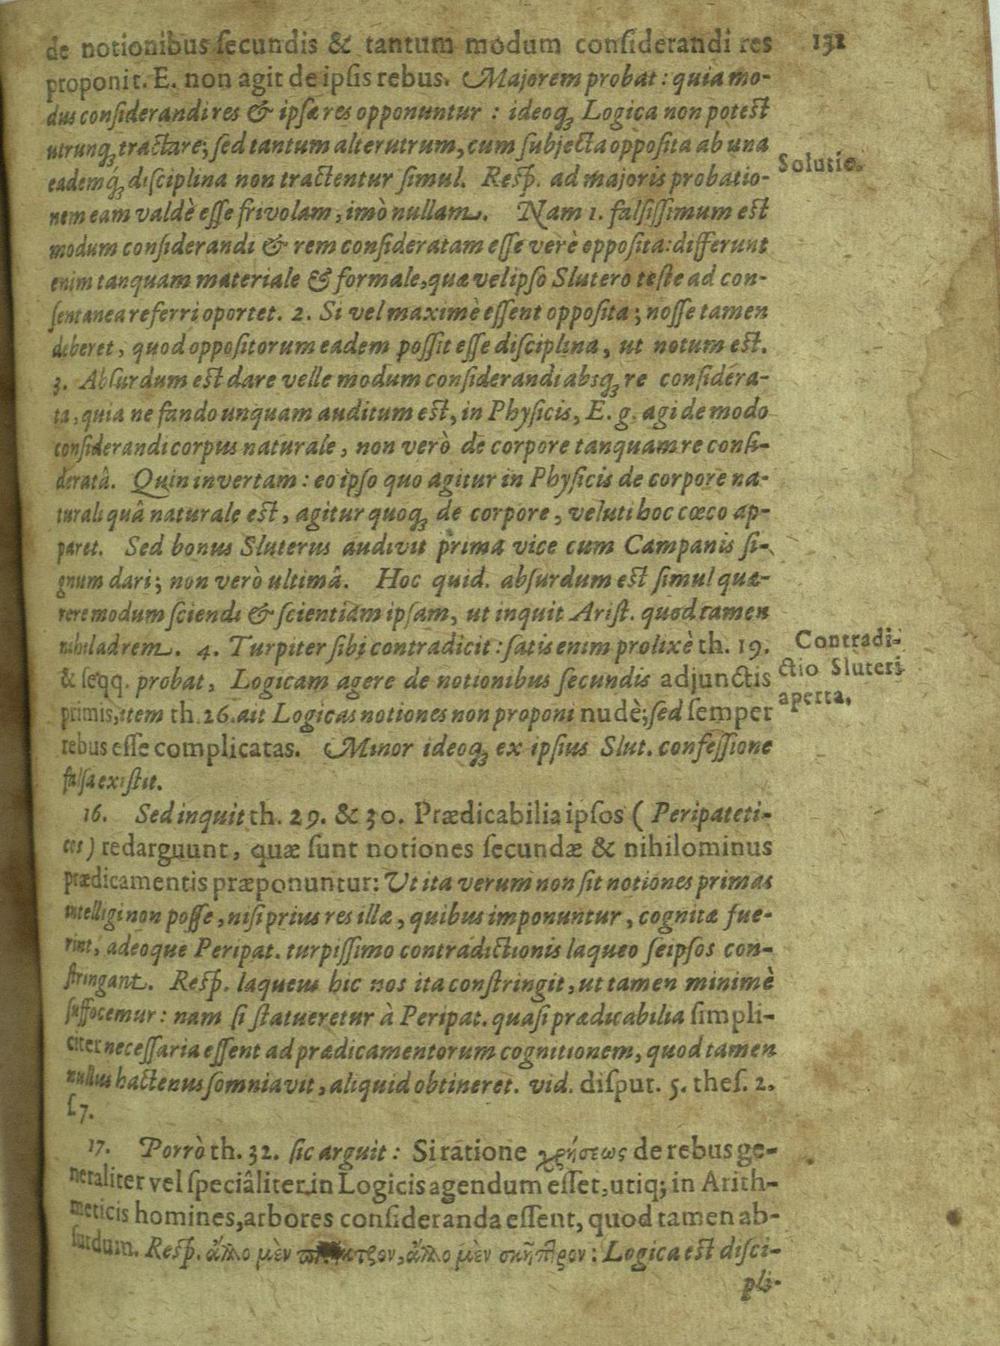 de notionibus ſecundis & tantum modum conſiderandi res 131
proponit. E. non agit de ipſis rebus. Majorem probat: quia mo-
dus conſiderandi res & ipſæ res opponuntur : ideoq; Logica non poteſt
utrunq; tractare; ſed tantum alterutrum, cum ſubjecta oppoſita ab una
eademq; diſciplina non tractentur ſimul. Reſp. ad majoris probatio-
Solutio.
nem eam valdè eſſe frivolam, imò nullam. Nam 1. falſiſſimum eſt
modum conſiderandi & rem conſideratam eſſe verè oppoſita: differunt
enim tanquam materiale & formale, quæ vel ipſo Slutero teſte ad con-
ſentanea referri oportet. 2. Si vel maximè eſſent oppoſita; noſſe tamen
deberet, quod oppoſitorum eadem poſſit eſſe diſciplina, ut notum eſt.
3. Abſurdum eſt dare velle modum conſiderandi absq; re conſidera-
ta, quia ne fando unquam auditum eſt, in Phyſicis, E. g. agi de modo
conſiderandi corpus naturale, non verò de corpore tanquam re conſi-
deratâ. Quin invertam: eo ipſo quo agitur in Phyſicis de corpore na-
turali quâ naturale eſt, agitur quoq; de corpore, veluti hoc cœco ap-
paret. Sed bonus Sluterus audivit prima vice cum Campanis ſi-
gnum dari; non verò ultimâ. Hoc quid. abſurdum eſt ſimul quæ-
rere modum ſciendi & ſcientiam ipſam, ut inquit Ariſt. quod tamen
nihil ad rem. 4. Turpiter ſibi contradicit: ſatis enim prolixè th. 19.
Contradi-
ctio Sluteri
aperta.
& ſeqq. probat, Logicam agere de notionibus ſecundis adjunctis
primis, item th. 26. ait Logicas notiones non proponi nudè; ſed ſemper
rebus eſſe complicatas. Minor ideoq; ex ipſius Slut. confeſſione
falſa exiſtit.
16. Sed inquit th. 29. & 30. Prædicabilia ipſos ( Peripateti-
cos) redarguunt, quæ ſunt notiones ſecundæ & nihilominus
prædicamentis præponuntur: Ut ita verum non ſit notiones primas
intelligi non poſſe, niſi prius res illæ, quibus imponuntur, cognitæ fue-
rint, adeoque Peripat. turpiſſimo contradictionis laqueo ſeipſos con-
ſtringant. Reſp. laqueus hic nos ita conſtringit, ut tamen minimè
ſuffocemur: nam ſi ſtatueretur à Peripat. quaſi prædicabilia ſimpli-
citer neceſſaria eſſent ad prædicamentorum cognitionem, quod tamen
nullus hactenus ſomniavit, aliquid obtineret. vid. diſput. 5. theſ. 2.
ſ 7.
17. Porrò th. 32. ſic arguit: Si ratione χρήσεως de rebus ge-
neraliter vel ſpeciâliter in Logicis agendum eſſet, utiq; in Arith-
meticis homines, arbores conſideranda eſſent, quod tamen ab-
ſurdum. Reſp. ἄλλο μὲν, ἄλλο μὲν σκῆπτρον: Logica eſt diſci-
pli-